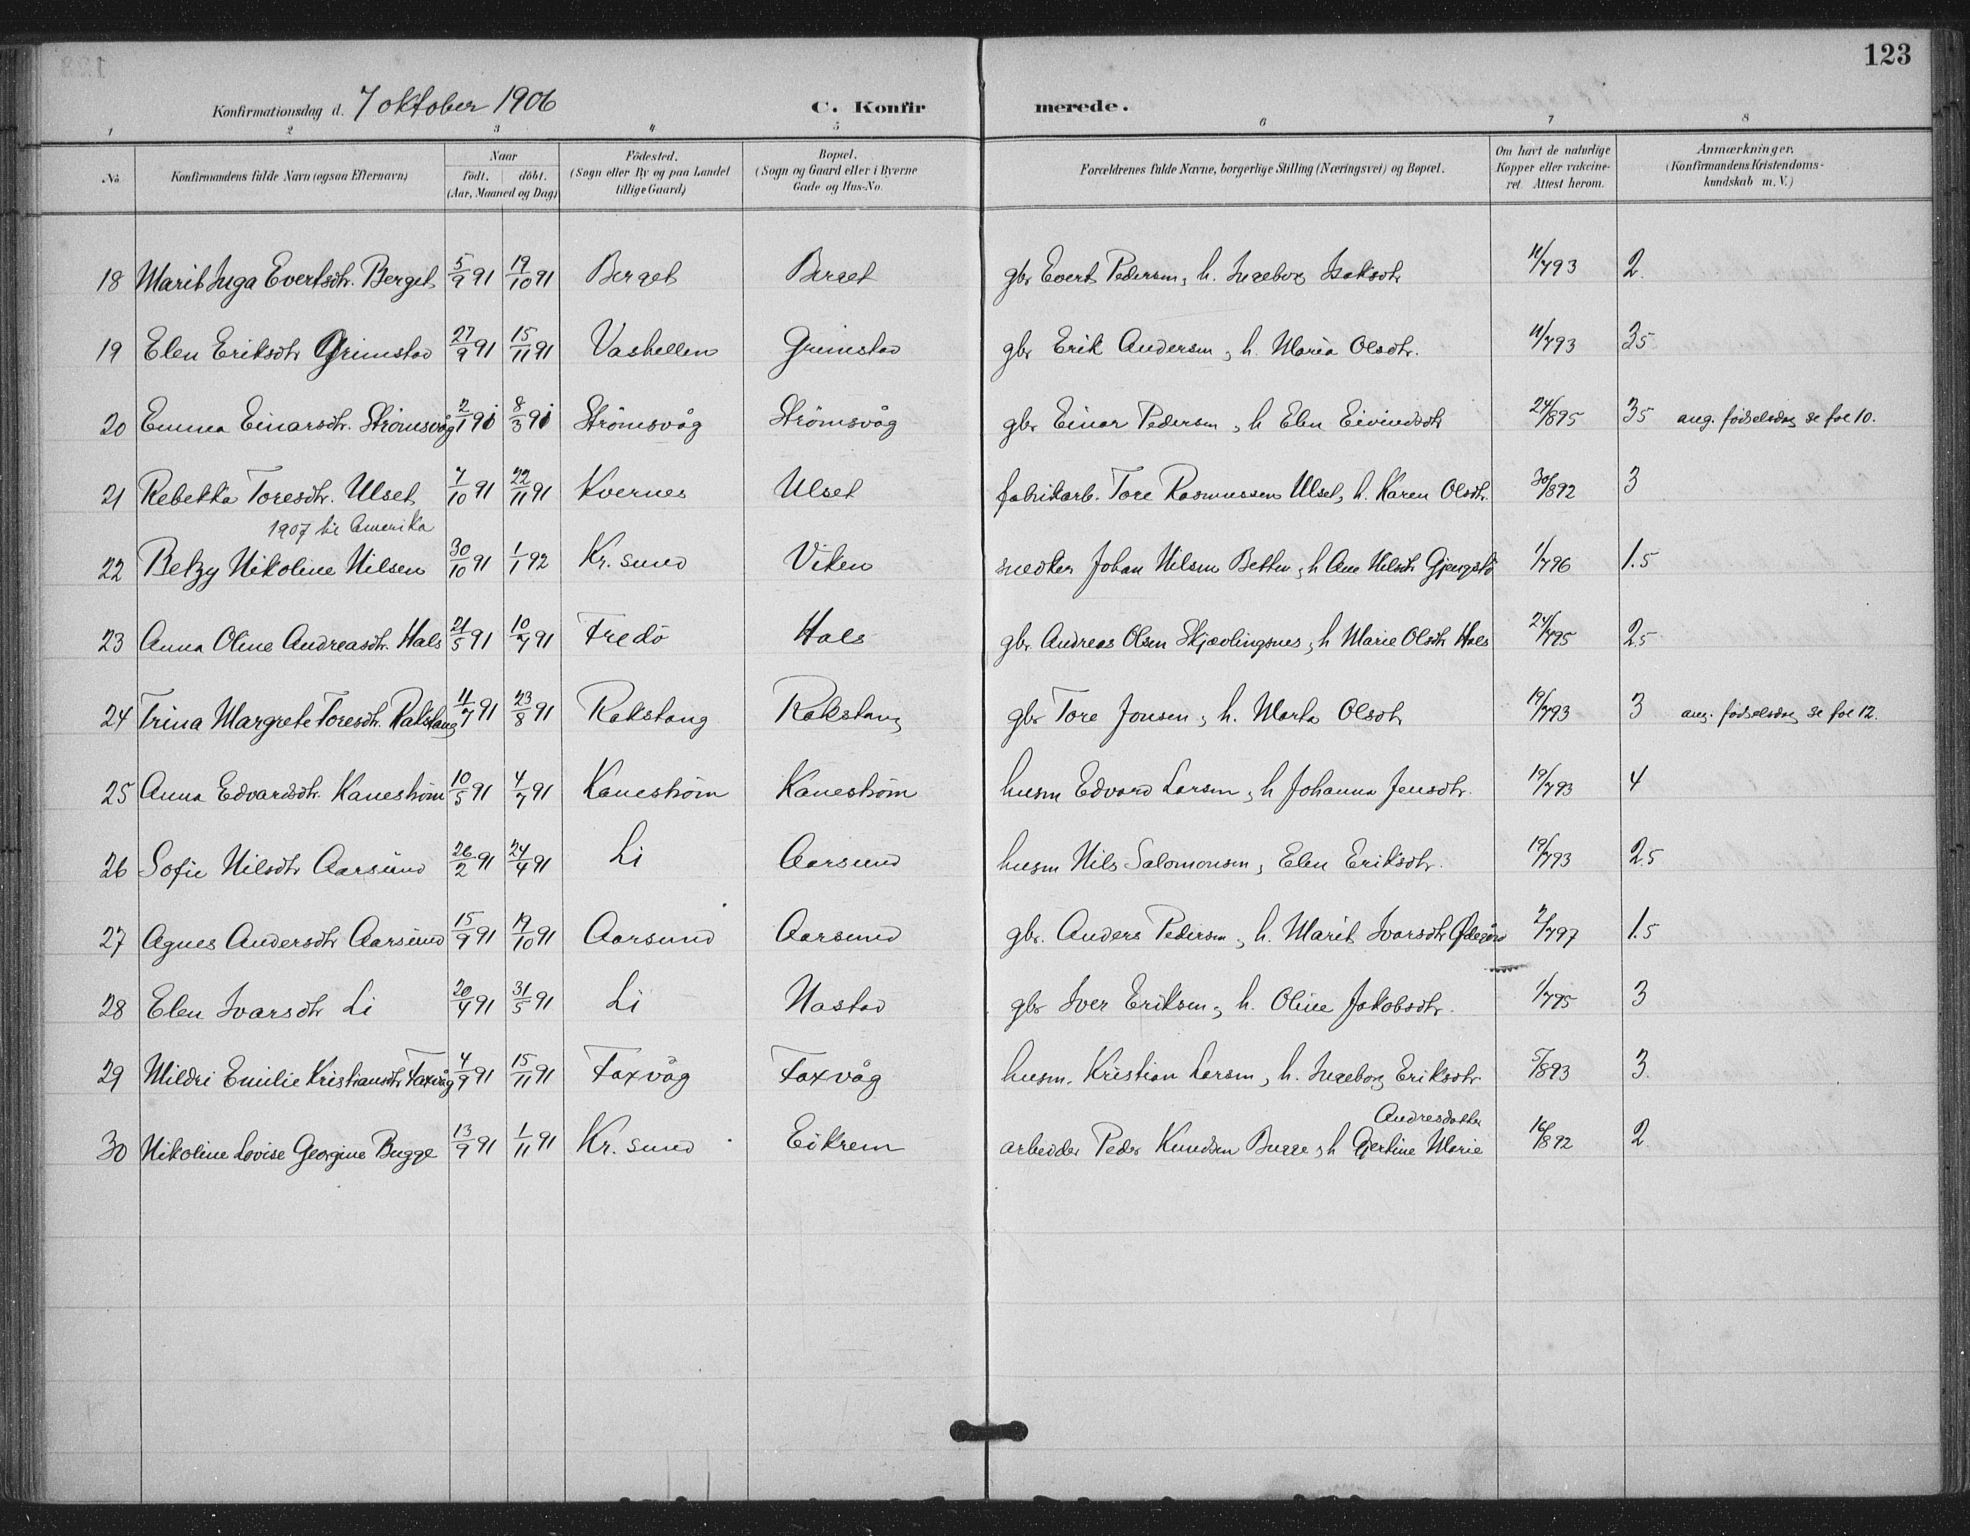 123
Konfirmationsdag d. 7 oktober 1906 C. Konfirmerede.
1 2 3 4 5 6 7 8
No. Konfirmandens fulde Navn (ogsaa Efternavn) Naar født. døbt. (Aar, Maaned og Dag) Fødested. (Sogn eller By og paa Landet tillige Gaard) Bopæl. (Sogn og Gaard eller i Byerne Gade og Hus-No. Forældrenes fulde Navne, borgerlige Stilling (Næringsvei) og Bopæl. Om havt de naturlige Kopper eller vakcineret. Attest herom. Anmærkninger. (Konfirmandens Kristendomskundskab m. V.)
18 Marit Inga Evertsdtr. Berget 5/9 91 19/10 91 Berget Berget gbr Evert Pedersen, h. Ingeborg Isaksdtr 11/7 93 2.
19 Elen Eriksdtr Grimstad 27/9 91 15/11 91 Vashellen Grimstad gbr Erik Andersen, h. Maria Olsdtr. 11/7 93 35
20 Emma Einarsdtr. Strömsvåg 2/1 91 8/3 91 Strömsvåg Strömsvåg gbr Einar Pedersen, h Elen Eivindsdtr 24/8 95 35 ang. fødselsdag se fol 10.
21 Rebekka Toresdtr. Ulset 7/10 91 22/11 91 Kvernes Ulset fabrikarb. Tore Rasmussen Ulset, h. Karen Olsdtr. 30/8 92 3
1907 til Amerika
22 Betzy Nikoline Nilsen 30/10 91 1/1 92 Kr. sund Viken snedker Johan Nilsen Betten, h Ane Nilsdtr 1/7 96 1.5
23 Anna Oline Andreasdtr. Hals 21/5 91 10/7 91 Fredö Hals gbr. Andreas Olsen Skjævlingsnes, h Marie Olsdtr Hals 24/7 95 25
24 Trina Margrete Toresdtr. Rakstang 11/7 91 23/8 91 Rakstang Rakstang gbr Tore Jonsen, h. Marta Olsdtr 19/7 93 3 ang. fødselsdag se fol 12.
25 Anna Edvardsdtr. Kanestrøm 10/5 91 4/7 91 Kanestrøm Kanestrøm husm Edvard Larsen, h Johanna Jensdtr. 19/7 93 4
26 Sofie Nilsdtr Aarsund 26/2 91 24/4 91 Li Aarsund husm Nils Salomonsen, Elen Eriksdtr. 19/7 93 25
27 Agnes Andersdtr Aarsund 15/9 91 19/10 91 Aarsund Aarsund gbr. Anders Pedersen, h. Marit Ivarsdtr Ødegård 2/7 97 1.5
28 Elen Ivarsdtr Li 20/4 91 31/5 91 Li Nastad gbr Iver Eriksen, h. Oline Jakobsdtr. 1/7 95 3
29 Mildri Emilie Kristiansdtr Faxvåg 4/9 91 15/11 91 Faxvåg Faxvåg husm. Kristian Larsen, h. Ingeborg Eriksdtr. 5/8 93 3.
Andresdatter
30 Nikoline Lovise Georgine Bugge 13/9 91 1/11 91 Kr. sund Eikrem arbeider Peder Knudsen Bugge, h Gjertine Marie 16/8 92 2.